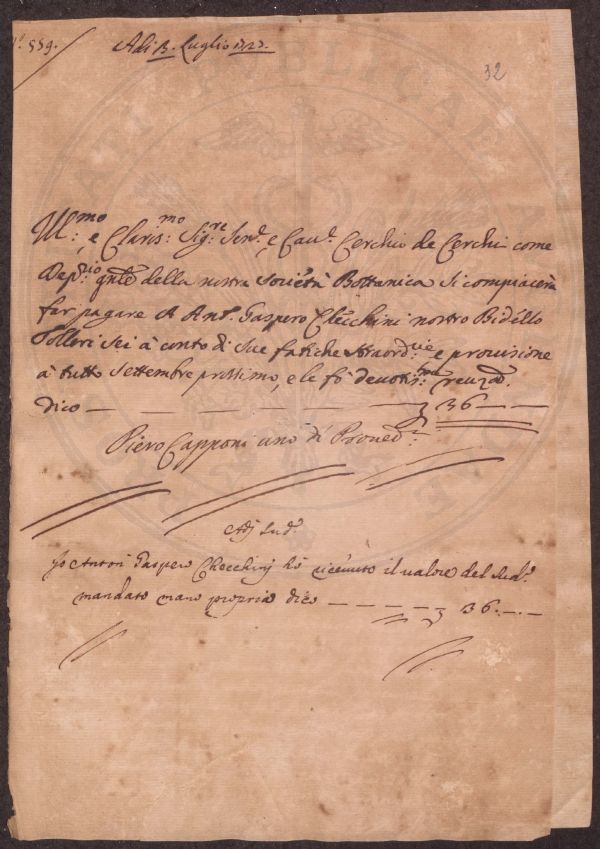 N.º 559.
Adi 13. Luglio 1723.
32
Ill:mo e Claris:mo Sig:re Sen:e e Cau:e Cerchio de Cerchi come
Dep:rio gnle della nostra Società Bottanica si compiacerà
far pagare a Ant:o Gaspero Checchini nostro Bidello
Scudi Sei à conto di Sue fatiche straord:rie e prouisione
à tutto Settembre prossimo, e le fò deuotis:ma reuerza
Dico — — — — — — 36 — —
Piero Capponi uno di Proued:ri
Adj Sud:o
Jo Anton Gaspero Checchinj hò riceuuto il ualore del Sud:o
mandato mano propria dico — — — — — 36. — . —